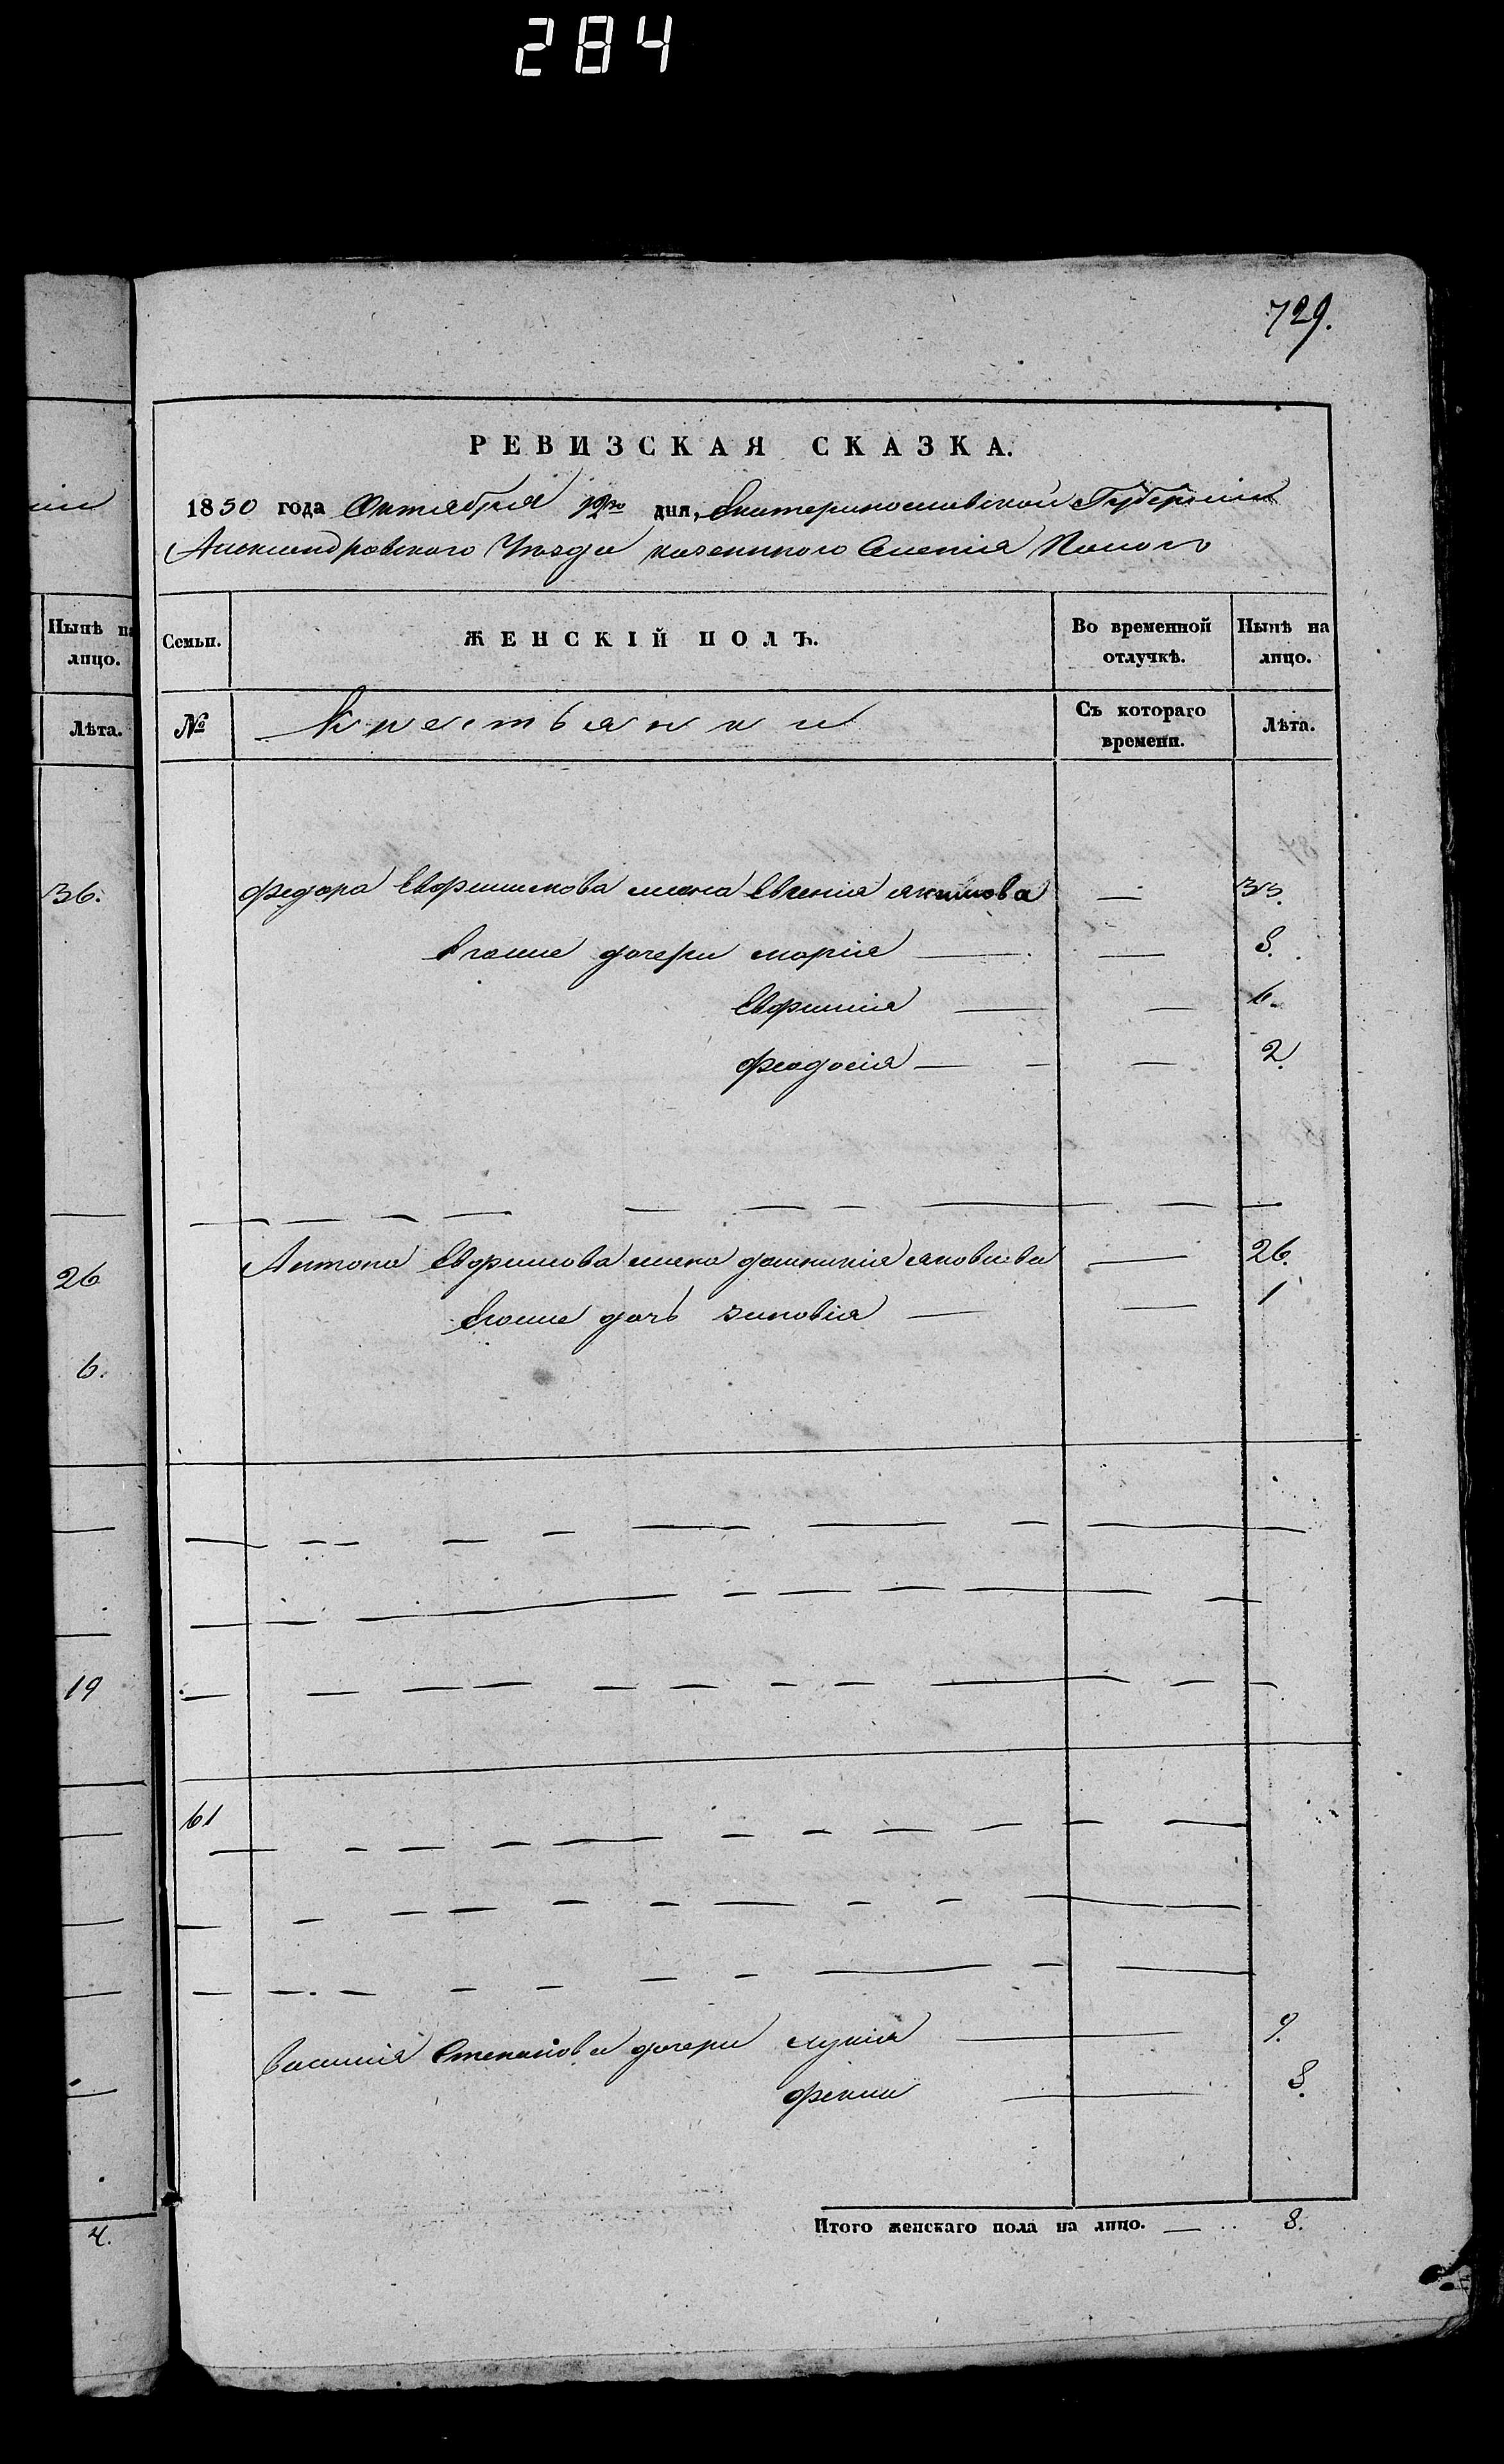 284
729.
РЕВИЗСКАЯ СКАЗКА.
1850 года Октября дня, Екатеринославской Губернии
Александровского Уезда казенного Селения
Нынѣ на
лицо.
Семьи.
ЖЕНСКІЙ ПОЛЪ.
Во временной
отлучкѣ.
Нынѣ на
лицо.
Лѣта.
№
Крестьянки
Съ котораго
времени.
Лѣта.
36.
федора жена Евгенія якимова — 33.
Егоже дочери марія — — 8.
Евфимія — — 6.
феодосія — — — 2.
26
Антона Евфимова жена домникія яковлева — 26.
Егоже дочь зиновія — — 1
6.
19
61
василія Степанова дочери лукія — 9.
— 8.
4.
Итого женскаго пола на лицо. — 8.